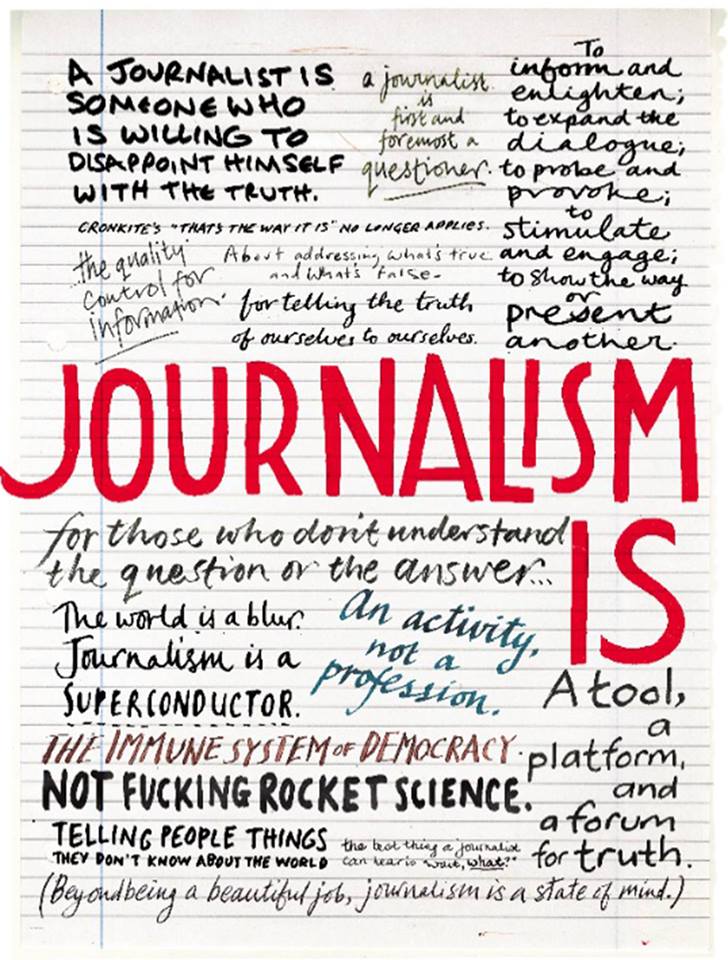 A JOURNALIST IS
SOMEONE WHO
IS WILLING TO
DISAPPOINT HIMSELF
WITH THE TRUTH.
a journalist
is
first and
foremost a
questioner.
To
inform and
enlighten;
to expand the
dialogue;
to probe and
provoke;
to
stimulate
and engage;
to show the way
or
present
another.
CRONKITE'S "THAT'S THE WAY IT IS" NO LONGER APPLIES.
...the quality
control for
information.
About addressing what's true
and what's false-
for telling the truth
of ourselves to ourselves.
JOURNALISM
IS
for those who don't understand
the question or the answer...
The world is a blur.
Journalism is a
SUPERCONDUCTOR.
An activity,
not a
profession.
A tool,
a
platform,
and
a forum
for truth.
THE IMMUNE SYSTEM OF DEMOCRACY.
NOT FUCKING ROCKET SCIENCE.
TELLING PEOPLE THINGS
THEY DON'T KNOW ABOUT THE WORLD
the best thing a journalist
can hear is "wait, what?"
(Beyond being a beautiful job, journalism is a state of mind.)